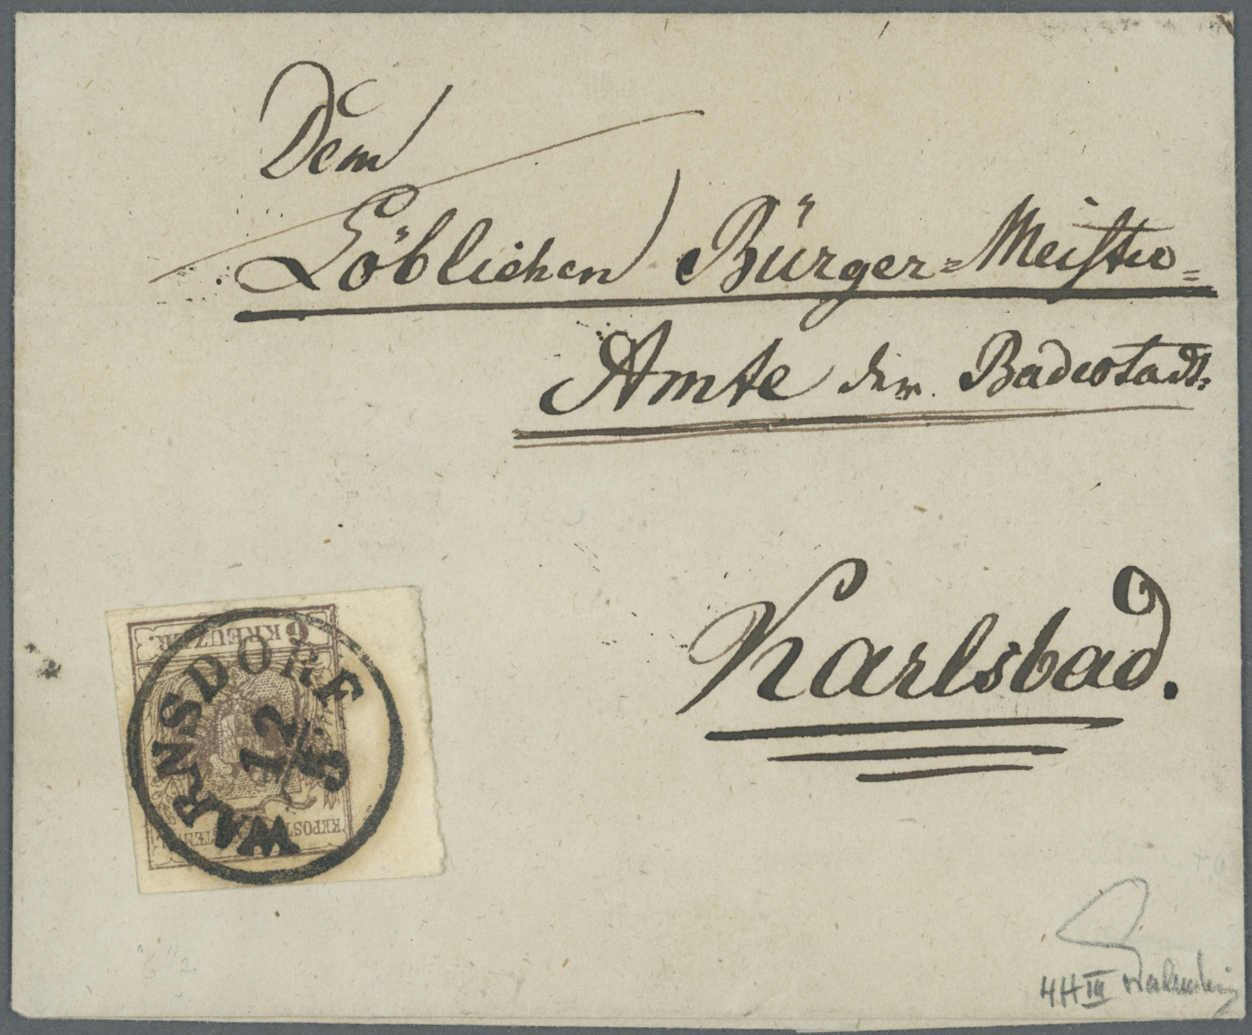 Dem
Löblichen Bürger=Meister=
Amte der Badestadt
Karlsbad.
6 KREUZER.
WARNSDORF
12
5
4H III